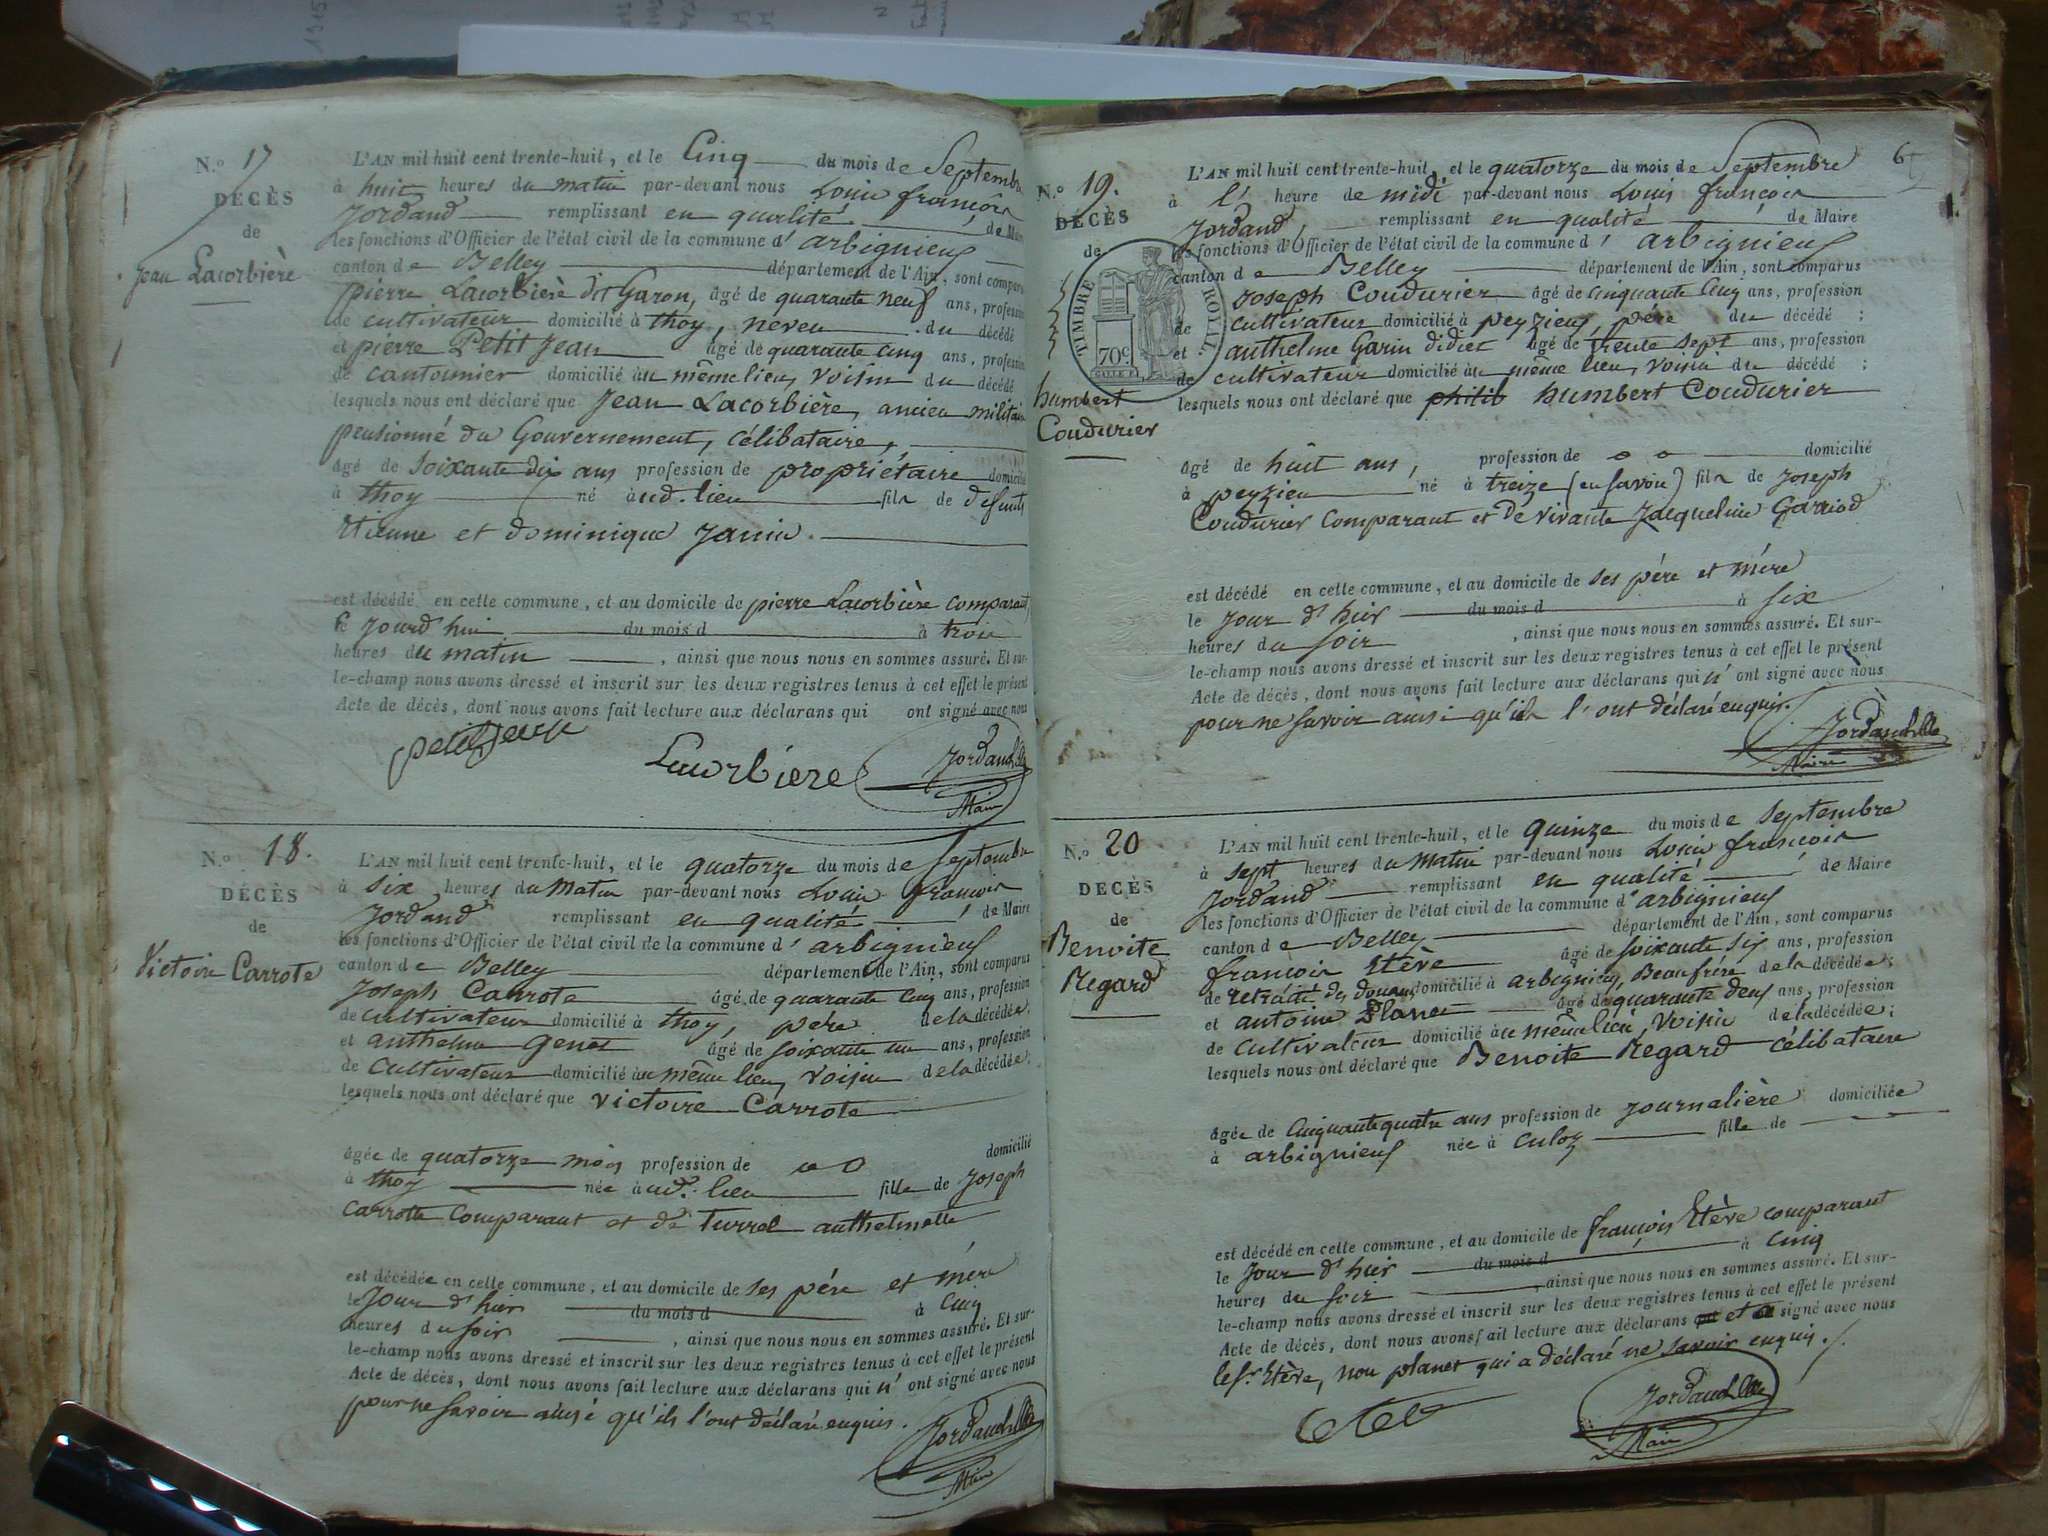 N.º 17
DÉCÈS
de
Jean Lacorbière
L'AN mil huit cent trente-huit, et le Cinq du mois de Septembre
à huit heures du matin par-devant nous Louis françois
Jordand remplissant en qualité de Maire
les fonctions d'Officier de l'état civil de la commune d'arbignieux
canton de Belley département de l'Ain, sont comparus
pierre Lacorbière dit Garon, âgé de quarante neuf ans, profession
de cultivateur domicilié à thoy, neveu du décédé
et pierre Petit Jean âgé de quarante cinq ans, profession
de cantonnier domicilié au même lieu, voisin du décédé
lesquels nous ont déclaré que Jean Lacorbière, ancien militaire
pensionné du Gouvernement, célibataire,
âgé de soixante dix ans profession de propriétaire domicilié
à thoy né aud. lieu fils de défunts
Etienne et dominique Janin.
est décédé en cette commune, et au domicile de pierre Lacorbière comparant
le jourd'hui du mois d à trois
heures du matin, ainsi que nous nous en sommes assuré. Et sur-
le-champ nous avons dressé et inscrit sur les deux registres tenus à cet effet le présent
Acte de décès, dont nous avons fait lecture aux déclarans qui ont signé avec nous
petitjean
Lacorbiere
Jordand
Maire
N.º 18.
DÉCÈS
de
Victoire Carrote
L'AN mil huit cent trente-huit, et le quatorze du mois de Septembre
à six heures du matin par-devant nous Louis françois
Jordand remplissant en qualité de Maire
les fonctions d'Officier de l'état civil de la commune d'arbignieux
canton de Belley département de l'Ain, sont comparus
Joseph Carrote âgé de quarante cinq ans, profession
de cultivateur domicilié à thoy, père de la décédée;
et anthelme Genet âgé de soixante un ans, profession
de cultivateur domicilié au même lieu, voisin de la décédée;
lesquels nous ont déclaré que victoire Carrote
âgée de quatorze mois profession de domicilié
à thoy née aud. lieu fille de Joseph
Carrotte comparant et de Turrel anthelmette
est décédée en cette commune, et au domicile de ses père et mère
le Jour d'hier du mois d à cinq
heures du soir, ainsi que nous nous en sommes assuré. Et sur-
le-champ nous avons dressé et inscrit sur les deux registres tenus à cet effet le présent
Acte de décès, dont nous avons fait lecture aux déclarans qui n'ont signé avec nous
pour ne savoir ainsi qu'ils l'ont déclaré enquis.
Jordand
Maire
6
N.º 19.
DÉCÈS
de
humbert
Coudurier
TIMBRE ROYAL
70 c.
L'AN mil huit cent trente-huit, et le quatorze du mois de Septembre
à l' heure de midi par-devant nous Louis françois
Jordand remplissant en qualité de Maire
les fonctions d'Officier de l'état civil de la commune d'arbignieux
canton de Belley département de l'Ain, sont comparus
Joseph Coudurier âgé de cinquante cinq ans, profession
de cultivateur domicilié à peyzieu, père du décédé;
et anthelme Garin didiet âgé de trente sept ans, profession
de cultivateur domicilié au même lieu, voisin du décédé;
lesquels nous ont déclaré que philib humbert Coudurier
âgé de huit ans, profession de domicilié
à peyzieu né à treize (en Savoie) fils de Joseph
Coudurier comparant et de vivante Jacqueline Garriod
est décédé en cette commune, et au domicile de ses père et mère
le jour d'hier du mois d à six
heures du soir, ainsi que nous nous en sommes assuré. Et sur-
le-champ nous avons dressé et inscrit sur les deux registres tenus à cet effet le présent
Acte de décès, dont nous avons fait lecture aux déclarans qui n'ont signé avec nous
pour ne savoir ainsi qu'ils l'ont déclaré enquis.
Jordand
Maire
N.º 20
DÉCÈS
de
Benoite
Regard
L'AN mil huit cent trente-huit, et le quinze du mois de Septembre
à sept heures du matin par-devant nous Louis françois
Jordand remplissant en qualité de Maire
les fonctions d'Officier de l'état civil de la commune d'arbignieux
canton de Belley département de l'Ain, sont comparus
françois Etève âgé de soixante six ans, profession
de retraité des douanes domicilié à arbignieu, Beaufrère de la décédée;
et antoine Planet âgé de quarante deux ans, profession
de cultivateur domicilié au même lieu, voisin de la décédée;
lesquels nous ont déclaré que Benoite Regard célibataire
âgée de cinquante quatre ans profession de journalière domiciliée
à arbignieux née à culoz fille de
est décédé en cette commune, et au domicile de françois Etève comparant
le jour d'hier du mois d à cinq
heures du soir, ainsi que nous nous en sommes assuré. Et sur-
le-champ nous avons dressé et inscrit sur les deux registres tenus à cet effet le présent
Acte de décès, dont nous avons fait lecture aux déclarans et a signé avec nous
le sr. Etève, non planet qui a déclaré ne savoir enquis.
Jordand
Maire